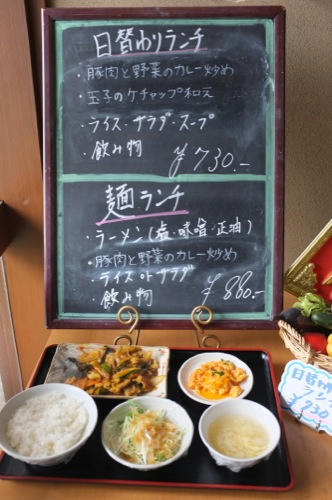 日替わりランチ
・豚肉と野菜のカレー炒め
・玉子のケチャップ和え
・ライス・サラダ・スープ
・飲み物
￥730.-
麺ランチ
・ラーメン(塩・味噌・正油)
・豚肉と野菜のカレー炒め
・ライス or サラダ
・飲み物
￥880.-
日替わり
ランチ
￥730